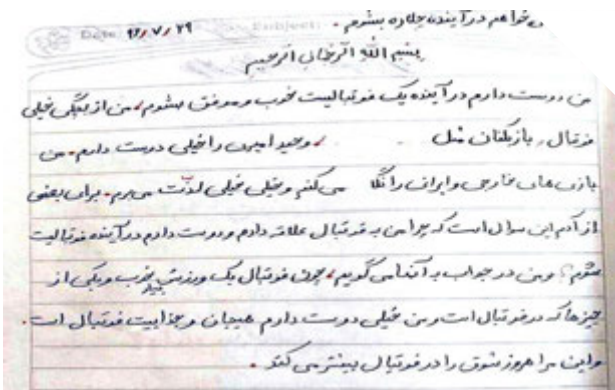 می‌خواهم در آینده چکاره بشوم.
Date: ۹۶/۷/۲۹ Subject:
بسم الله الرحمن الرحیم
من دوست دارم در آینده یک فوتبالیست خوب و موفق بشوم، من از بچگی خیلی
فوتبال، بازیکنان مثل ، وحید امیری را خیلی دوست دارم. من
بازی های خارجی و ایران را نگا می کنم و خیلی خیلی لذت می برم. برای بعضی
از آدم این سوال است که چرا من به فوتبال علاقه دارم و دوست دارم در آینده فوتبالیست
بشوم؟ و من در جواب به آنها می گویم، چون فوتبال یک ورزش بسیار خوب و یکی از
چیزها که در فوتبال است و من خیلی دوست دارم هیجان و جذابیت فوتبال است.
و این مرا هر روز شوق را در فوتبال بیشتر می کند.